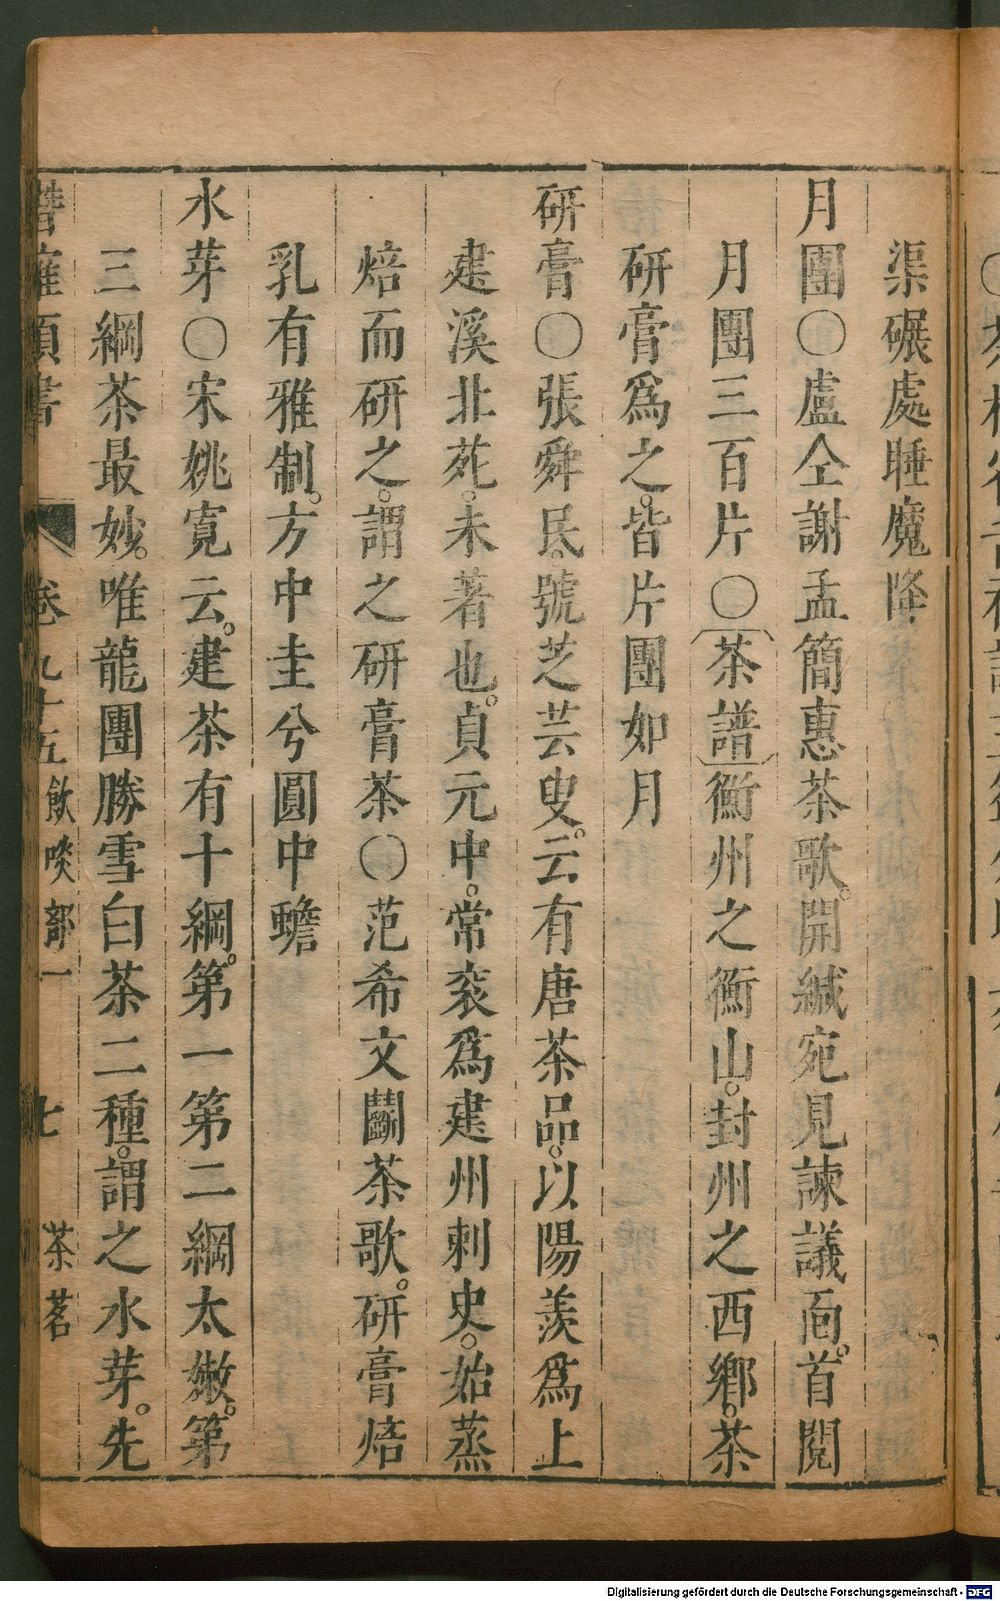 渠碾處睡魔降
月團〇盧仝謝孟簡惠茶歌。開緘宛見諫議面。首閱
月團三百片〇茶譜衡州之衡山。封州之西鄉。茶
研膏爲之。皆片團如月
研膏〇張舜民。號芝芸叟。云有唐茶品。以陽羨爲上
建溪北苑。未著也。貞元中。常衮爲建州刺史。始蒸
焙而研之。謂之研膏茶〇范希文鬭茶歌。研膏焙
乳有雅制。方中圭兮圓中蟾
水芽〇宋姚寬云。建茶有十綱。第一第二綱太嫩。第
三綱茶最妙。唯龍團勝雪白茶二種。謂之水芽。先
卷九十五 飲啖部一 七 茶茗
Digitalisierung gefördert durch die Deutsche Forschungsgemeinschaft - DFG